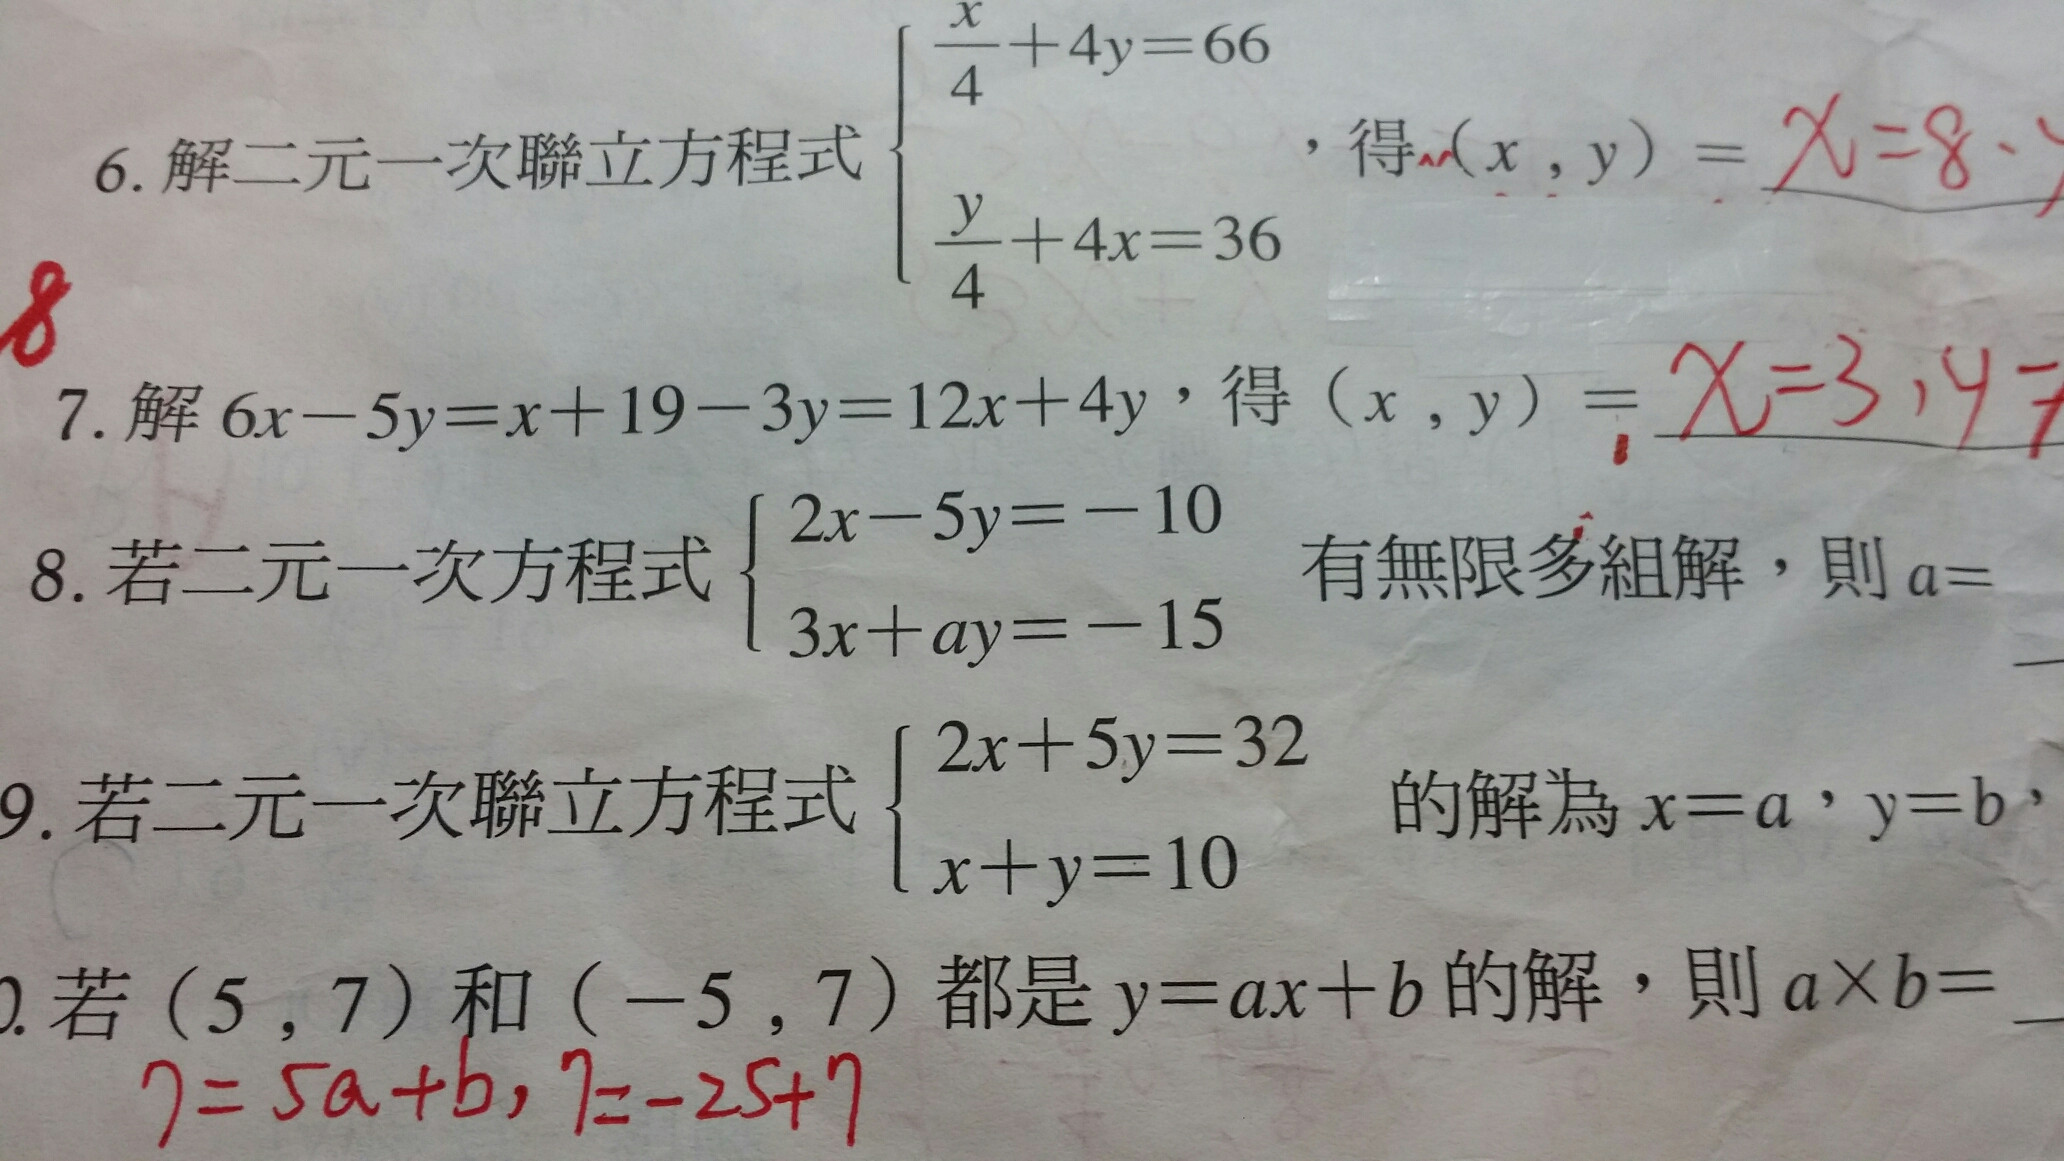 x/4+4y=66
6. 解二元一次聯立方程式 ，得（x , y）= x=8、y
y/4+4x=36
8
7. 解 6x−5y=x+19−3y=12x+4y，得（x , y）= x=3，y=
2x−5y=−10
8. 若二元一次方程式 有無限多組解，則 a=
3x+ay=−15
2x+5y=32
9. 若二元一次聯立方程式 的解為 x=a，y=b，
x+y=10
0. 若（5 , 7）和（−5 , 7）都是 y=ax+b 的解，則 a×b=
7=5a+b, 7=-25+7